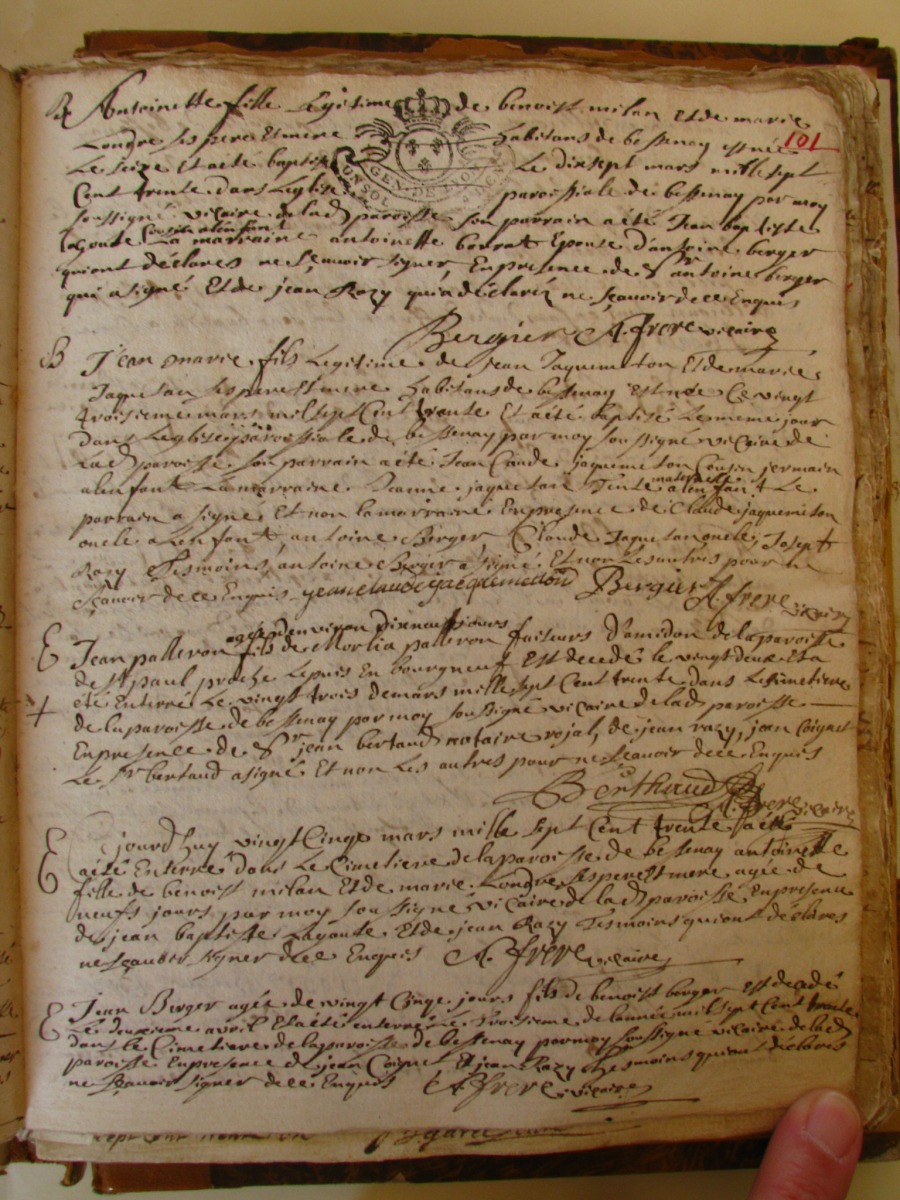 101
B Antoinette fille legitime de benoist milan Et de marie
Londre ses pere Et mere habitans de bessenay est née
Le seize Et a eté baptisée Le dix sept mars mille sept
Cent trente dans Leglise paroissiale de bessenay par moy
soussigné vicaire de lad paroisse son parrain a été Jean baptiste
Cousin alenfant
Lagoute La marraine antoinette borrat Epouse dantoine berger
qui ont déclarés ne sçauoir signer, En presence de Sr antoine berger
qui a signé Et de jean Razy qui a déclaré ne sçauoir de ce Enquis
GEN DE LYON
CONSOL
Bergier A. frere vicaire
B Jean marie fils Legitime de jean Jaquemeton Et de marie
Jaquetan ses pere Et mere habitans de bessenay Est née Ce vingt
troisieme mars mil sept Cent trente Et a eté baptisé Le meme jour
dans Leglise paroissiale de bessenay par moy soussigné vicaire de
Lad paroisse son parrain a eté Jean Claude jaquemeton Cousin jermain
maternelle
alenfant La marraine Jeanne jaquetan Tente a lenfant Le
parrain a signé Et non la marraine En presence de Claude jaquemeton
oncle a Lenfant, antoine Berger Claude Jaquetan oncle, Joseph
Razy Tesmoins, antoine Berger a signé Et non Les autres pour ne
sçauoir de ce Enquis jean claude jacquemeton Bergier A. frere vicaire
agée denviron dix neuf jours
E Jean palleron fils de palleron faiseurs damidon de la paroisse
de St paul proche Le puis En bourgneuf Est decedé le vingt deux Et a
été Enterré Le vingt trois de mars mille sept Cent trente dans Le Cimetiere
de la paroisse de bessenay par moy soussigné vicaire de lad paroisse
En presence de Sr jean bertaud notaire rojal, de jean razy, jean Coignet
Le Sr bertaud a signé Et non Les autres pour ne sçauoir de ce Enquis
Berthaud A. frere vicaire
E jourdhuy vingt Cinqe mars mille sept Cent trente
a eté Enterré dans Le Cimetiere de la paroisse de bessenay antoinette
fille de benoist milan Et de marie Londre ses pere Et mere agée de
neufs jours par moy soussigné vicaire de la d paroisse En presence
de jean baptiste Lagoute Et de jean Razy Tesmoins qui ont déclarés
ne sçauoir signer de ce Enquis A. frere vicaire
E Jean Berger agée de vingt Cinqe jours fils de benoist berger Est decedé
Le deuxieme avril Et a eté enterré Le troisieme de lannée mil sept Cent trente
dans le Cimetiere de la paroisse de bessenay par moy soussigné vicaire de lad
paroisse En presence de jean Coignet Et jean Razy Tesmoins qui ont déclarés
ne sçauoir signer de ce Enquis A. frere vicaire